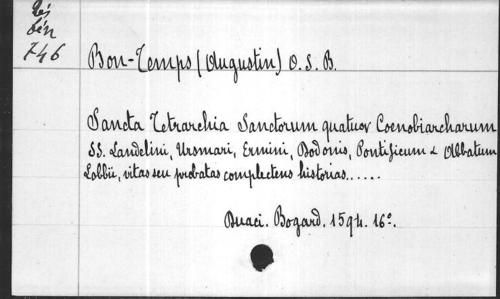 Rés
bén
746
Bon-Temps (Augustin) O. S. B.
Sancta Tetrarchia Sanctorum quatuor Coenobiarcharum
SS. Landelini, Ursmari, Ermini, Dodonis, Pontificum & Abbatum
Lobbii, vitas seu probatas complectens historias......
Duaci. Bogard. 1594. 16°.